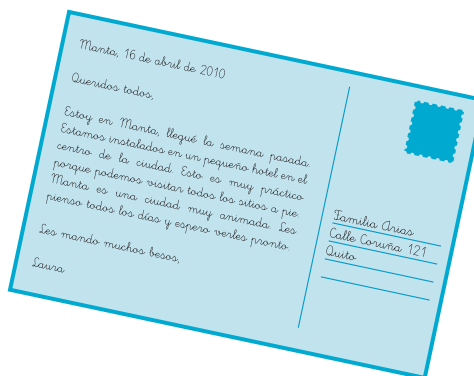 Manta, 16 de abril de 2010
Queridos todos,
Estoy en Manta, llegué la semana pasada.
Estamos instalados en un pequeño hotel en el
centro de la ciudad. Esto es muy práctico
porque podemos visitar todos los sitios a pie.
Manta es una ciudad muy animada. Les
pienso todos los días y espero verles pronto.
Les mando muchos besos,
Laura
Familia Arias
Calle Coruña 121
Quito